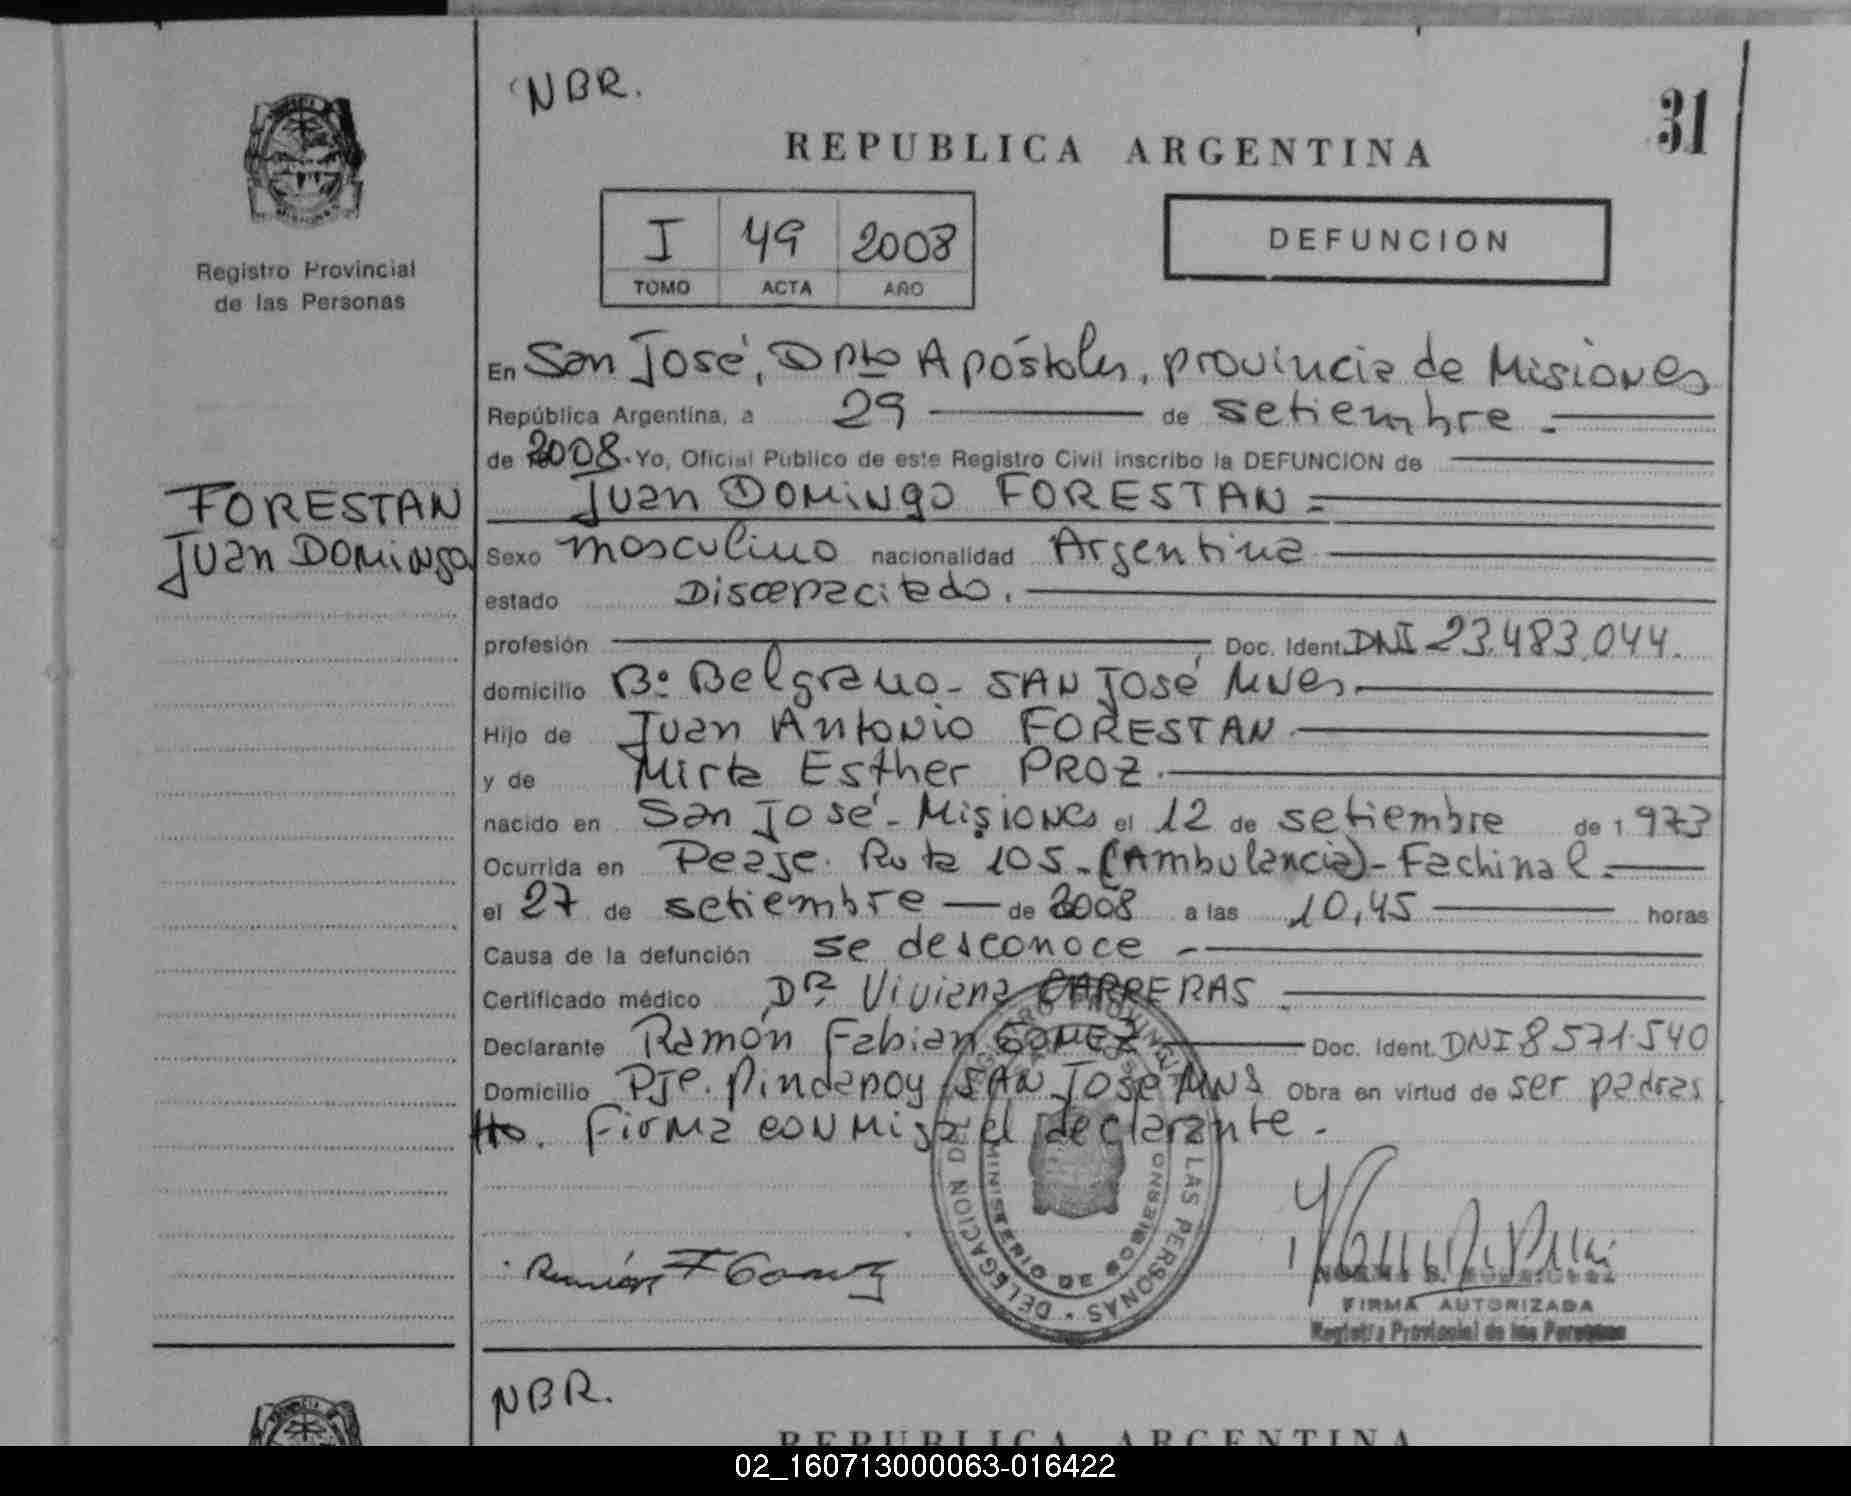 NBR.
31
REPUBLICA ARGENTINA
I 49 2008
TOMO ACTA AÑO
DEFUNCION
Registro Provincial
de las Personas
FORESTAN
Juan Domingo
En San José, Dpto Apóstoles, provincia de Misiones
República Argentina, a 29 de setiembre.
de 2008. Yo, Oficial Público de este Registro Civil inscribo la DEFUNCION de
Juan Domingo FORESTAN
Sexo masculino nacionalidad Argentina
estado Discapacitado.
profesión Doc. Ident. DNI 23.483.044.
domicilio Bº Belgrano - SAN José Mnes.
Hijo de Juan Antonio FORESTAN
y de Mirta Esther PROZ.
nacido en San José - Misiones el 12 de setiembre de 1973
Ocurrida en Peaje Ruta 105 - (Ambulancia) - Fachinal.
el 27 de setiembre de 2008 a las 10,45 horas
Causa de la defunción se desconoce
Certificado médico DRa. Viviana CARRERAS
Declarante Ramón Fabian GOMEZ Doc. Ident. DNI 8571.540
Domicilio Pje. Pindapoy SAN José MNS Obra en virtud de ser padras
tro. Firma conmigo el declarante.
REGISTRO PROVINCIAL DE LAS PERSONAS - DELEGACION
MINISTERIO DE GOBIERNO
Ramón F Gomez
FIRMA AUTORIZADA
Registro Provincial de las Personas
NBR.
REPUBLICA ARGENTINA
02_160713000063-016422